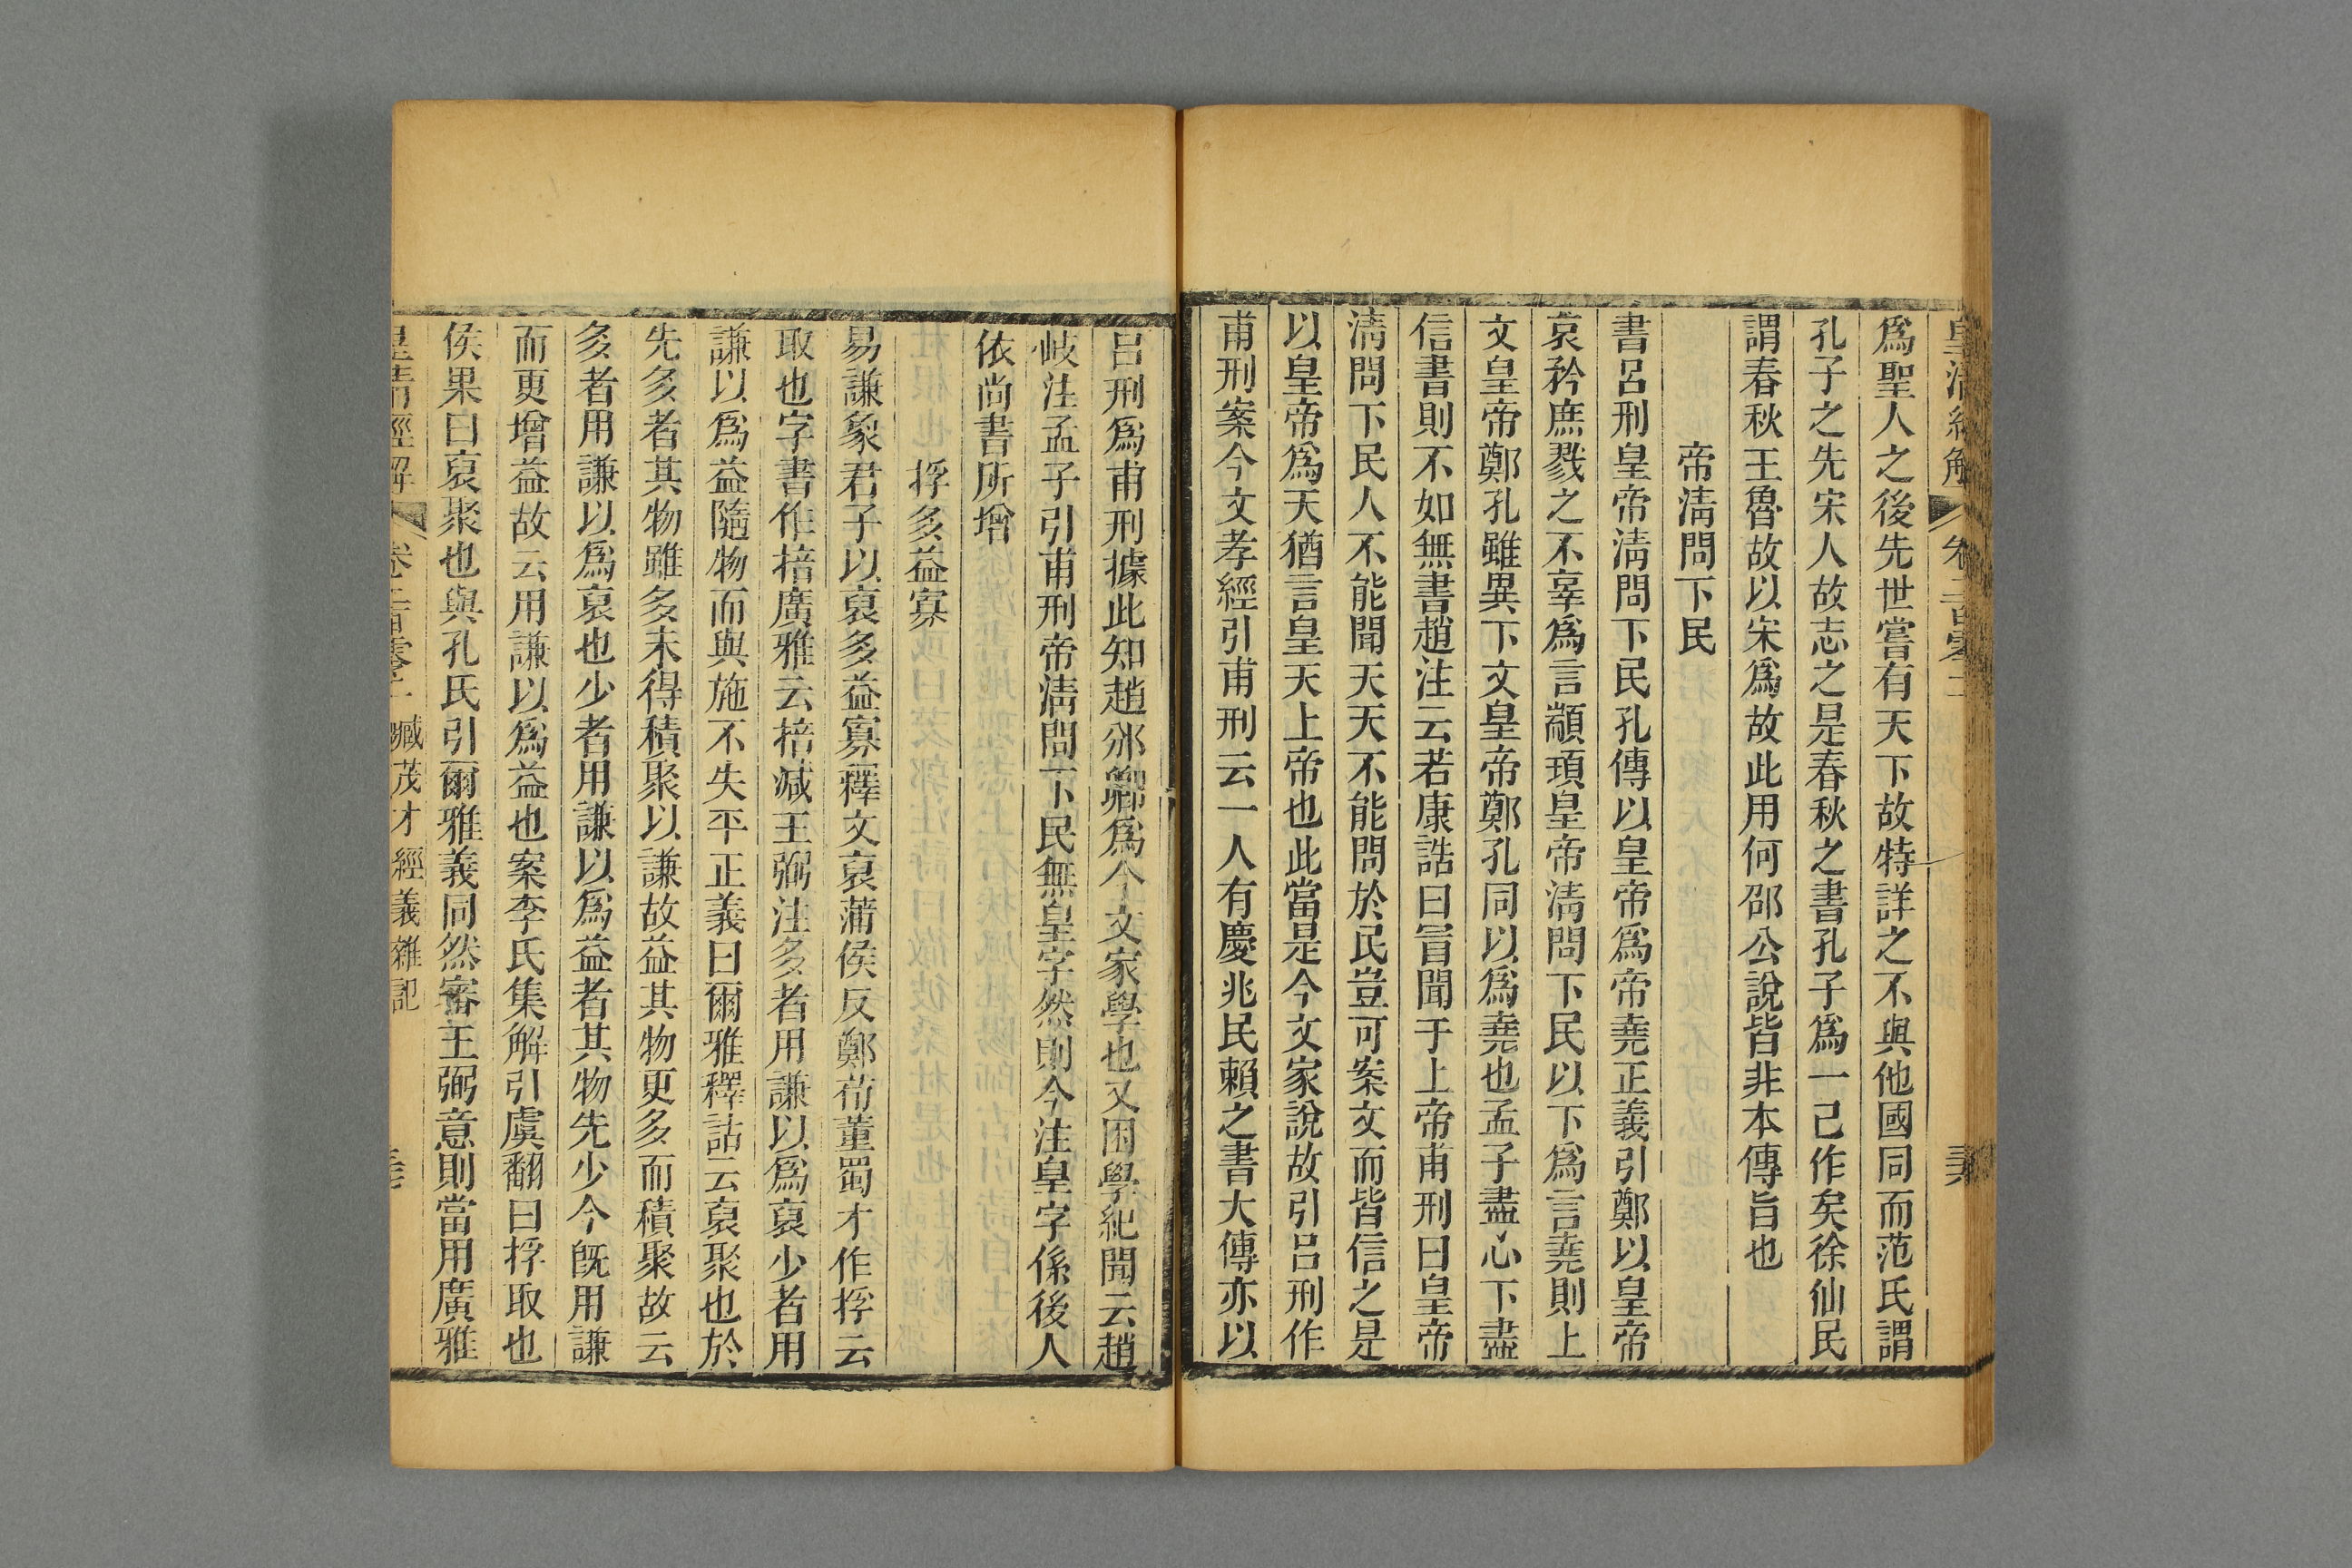 皇清經解 卷二百零二
爲聖人之後先世嘗有天下故特詳之不與他國同而范氏謂
孔子之先宋人故志之是春秋之書孔子爲一己作矣徐仙民
謂春秋王魯故以宋爲故此用何邵公說皆非本傳旨也
帝淸問下民
書呂刑皇帝淸問下民孔傳以皇帝爲帝堯正義引鄭以皇帝
哀矜庶戮之不辜爲言顓頊皇帝淸問下民以下爲言堯則上
文皇帝鄭孔雖異下文皇帝鄭孔同以爲堯也孟子盡心下盡
信書則不如無書趙注云若康誥曰冒聞于上帝甫刑曰皇帝
淸問下民人不能聞天天不能問於民豈可案文而皆信之是
以皇帝爲天猶言皇天上帝也此當是今文家說故引呂刑作
甫刑案今文孝經引甫刑云一人有慶兆民賴之書大傳亦以
呂刑爲甫刑據此知趙邠卿爲今文家學也又困學紀聞云趙
岐注孟子引甫刑帝淸問下民無皇字然則今注皇字係後人
依尚書所增
捊多益寡
易謙象君子以裒多益寡釋文裒蒲侯反鄭荀董蜀才作捊云
取也字書作掊廣雅云掊減王弼注多者用謙以爲裒少者用
謙以爲益隨物而與施不失平正義曰爾雅釋詁云裒聚也於
先多者其物雖多未得積聚以謙故益其物更多而積聚故云
多者用謙以爲裒也少者用謙以爲益者其物先少今旣用謙
而更增益故云用謙以爲益也案李氏集解引虞翻曰捊取也
侯果曰裒聚也與孔氏引爾雅義同然審王弼意則當用廣雅
皇淸經解 卷二百零二 臧茂才經義雜記